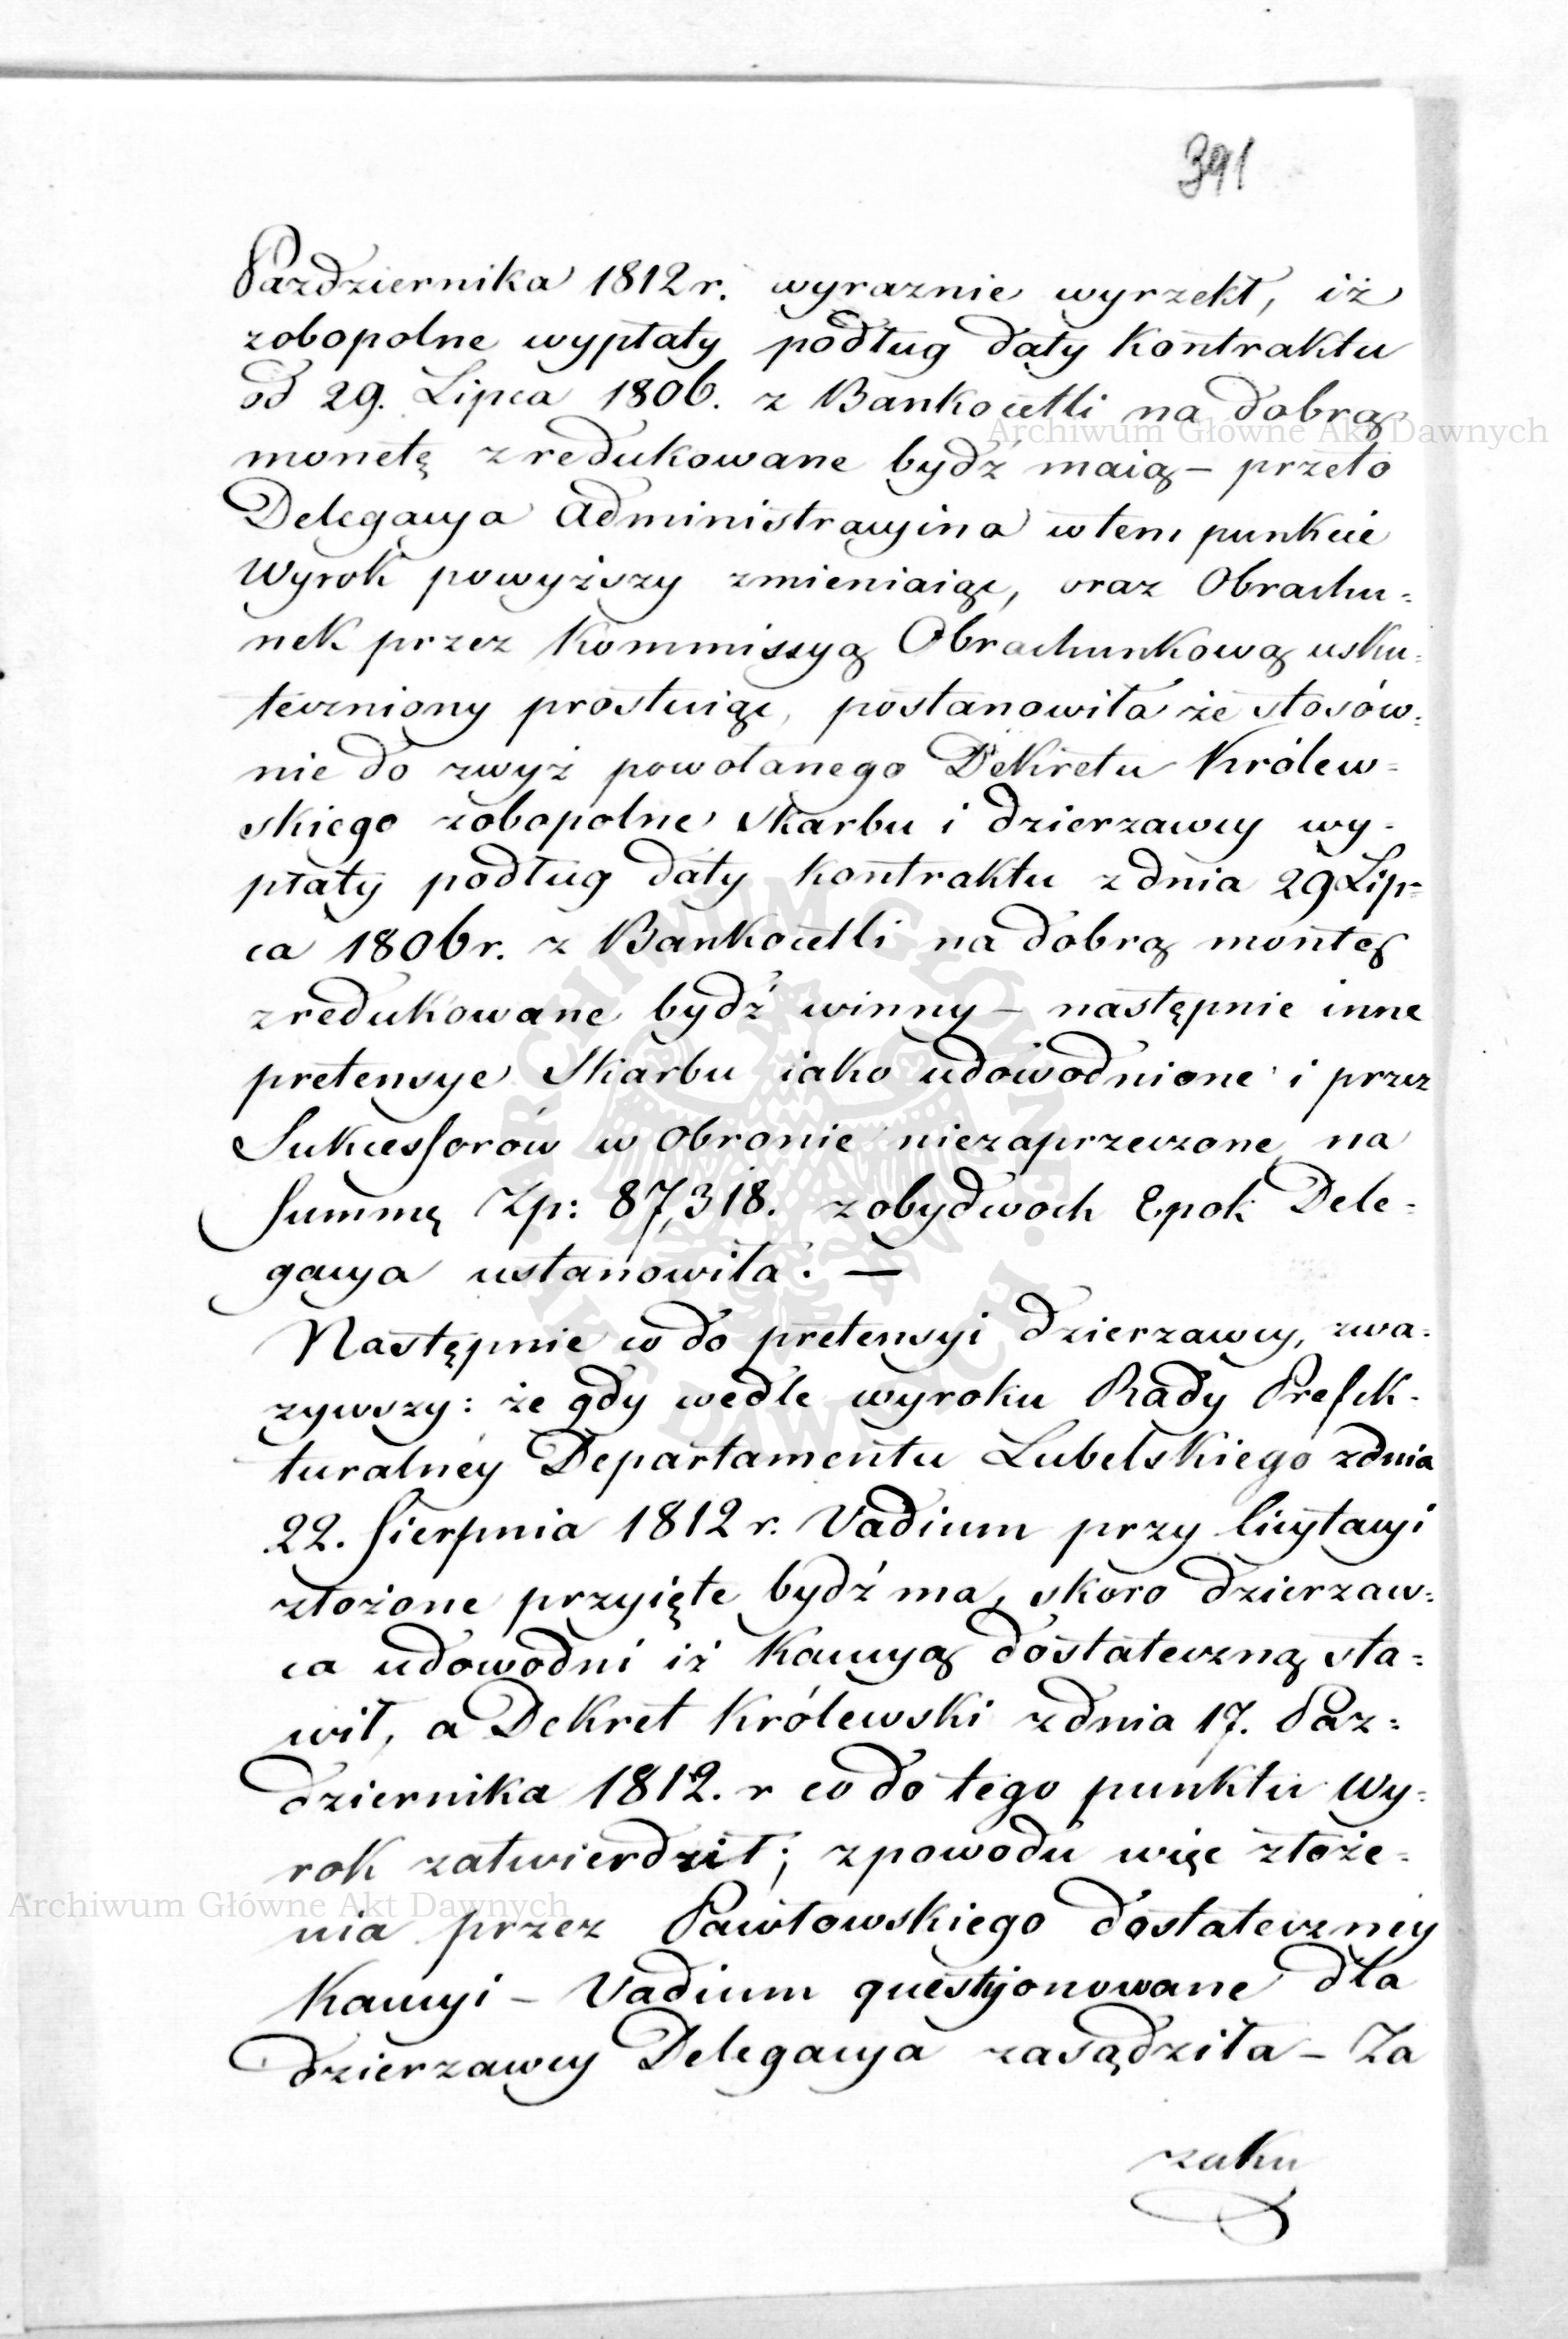 391
Pazdziernika 1812 r. wyraznie wyrzekł, iż
zobopolne wypłaty podług daty Kontraktu
od 29. Lipca 1806. z Bankocetli na dobrą
Archiwum Główne Akt Dawnych
monetę zredukowane bydź maią – przeto
Delegacya Administracyina w tem punkcie
Wyrok powyższy zmieniaiąc, oraz Obrachu=
nek przez Kommissyą Obrachunkową usku=
teczniony prostuiąc, postanowiła że stosów=
nie do zwyż powołanego Dekretu Królew=
skiego zobopolne Skarbu i dzierzawcy wy=
płaty podług daty Kontraktu z dnia 29 Lip=
ca 1806 r. z Bankocetli na dobrą montę
zredukowane bydź winny – następnie inne
pretensye Skarbu iako udowodnione i przez
Sukcessorów w Obronie niezaprzeczone na
Summę Zp: 87,318. z obydwoch Epok Dele=
gacya ustanowiła. —
Następnie co do pretensyi dzierzawcy, zwa=
zywszy: że gdy wedle wyroku Rady Prefek=
turalney Departamentu Lubelskiego z dnia
22. Sierpnia 1812 r. Vadium przy licytacyi
złożone przyięte bydź ma, skoro dzierzaw=
ca udowodni iż Kaucyą dostateczną sta=
wił, a Dekret Królewski z dnia 17. Paz=
dziernika 1812. r co do tego punktu Wy=
rok zatwierdził; z powodu więc złoże=
Archiwum Główne Akt Dawnych
nia przez Pawłowskiego dostateczney
Kaucyi – Vadium questyonowane dla
dzierzawcy Delegacya zasądziła – Za
zaku
ARCHIWUM GŁÓWNE AKT DAWNYCH